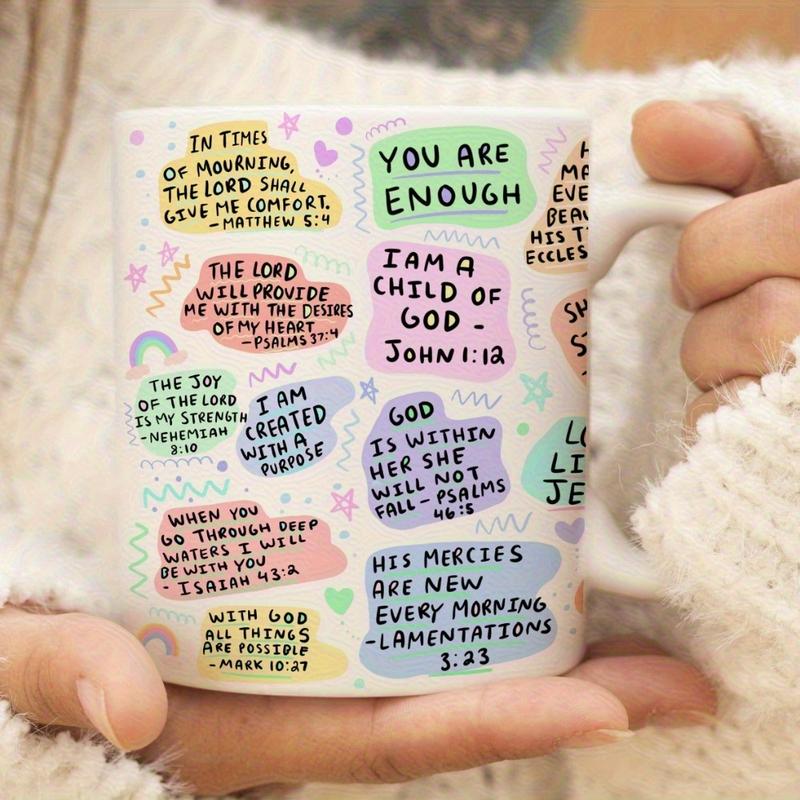 IN TIMES
OF MOURNING,
THE LORD SHALL
GIVE ME COMFORT.
-MATTHEW 5:4
YOU ARE
ENOUGH
THE LORD
WILL PROVIDE
ME WITH THE DESIRES
OF MY HEART
-PSALMS 37:4
I AM A
CHILD OF
GOD -
JOHN 1:12
THE JOY
OF THE LORD
IS MY STRENGTH
-NEHEMIAH
8:10
I AM
CREATED
WITH A
PURPOSE
GOD
IS WITHIN
HER SHE
WILL NOT
FALL - PSALMS
46:5
WHEN YOU
GO THROUGH DEEP
WATERS I WILL
BE WITH YOU
- ISAIAH 43:2
HIS MERCIES
ARE NEW
EVERY MORNING
-LAMENTATIONS
3:23
WITH GOD
ALL THINGS
ARE POSSIBLE
-MARK 10:27
HIS